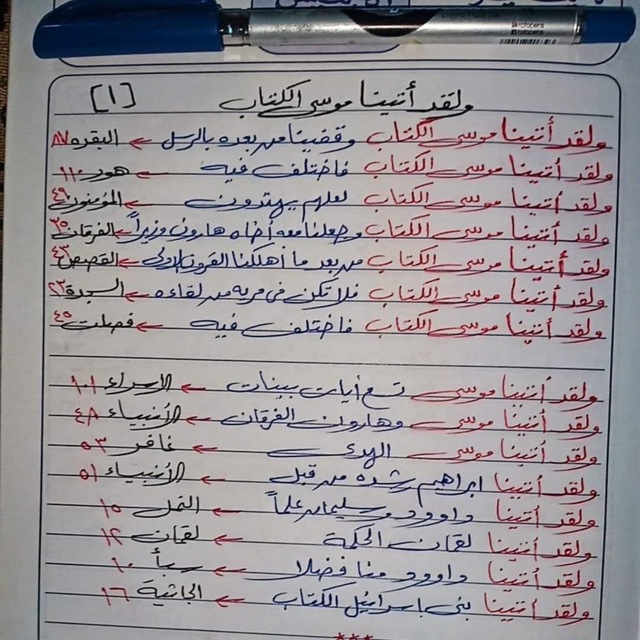 rotopens
rotopens
ولقد أتينا موسى الكتاب [١]
ولقد أتينا موسى الكتاب وقفينا من بعده بالرسل ← البقره ٨٧
ولقد أتينا موسى الكتاب فاختلف فيه ← هود ١١٠
ولقد أتينا موسى الكتاب لعلهم يهتدون ← المؤمنون ٤٩
ولقد أتينا موسى الكتاب وجعلنا معه أخاه هارون وزيراً ← الفرقان ٣٥
ولقد أتينا موسى الكتاب من بعد ما أهلكنا القرون الاولى ← القصص ٤٣
ولقد أتينا موسى الكتاب فلا تكن فى مريه من لقاءه ← السجدة ٢٣
ولقد أتينا موسى الكتاب فاختلف فيه ← فصلت ٤٥
ولقد أتينا موسى تسع أيات بينات ← الإسراء ١٠١
ولقد أتينا موسى وهارون الفرقان ← الأنبياء ٤٨
ولقد أتينا موسى الهدى ← غافر ٥٣
ولقد أتينا ابراهيم رشده من قبل ← الأنبياء ٥١
ولقد أتينا داوود وسليمان علماً ← النمل ١٥
ولقد أتينا لقمان الحكمة ← لقمان ١٢
ولقد أتينا داوود منا فضلا ← سبأ ١٠
ولقد أتينا بنى اسرائيل الكتاب ← الجاثية ١٦
***